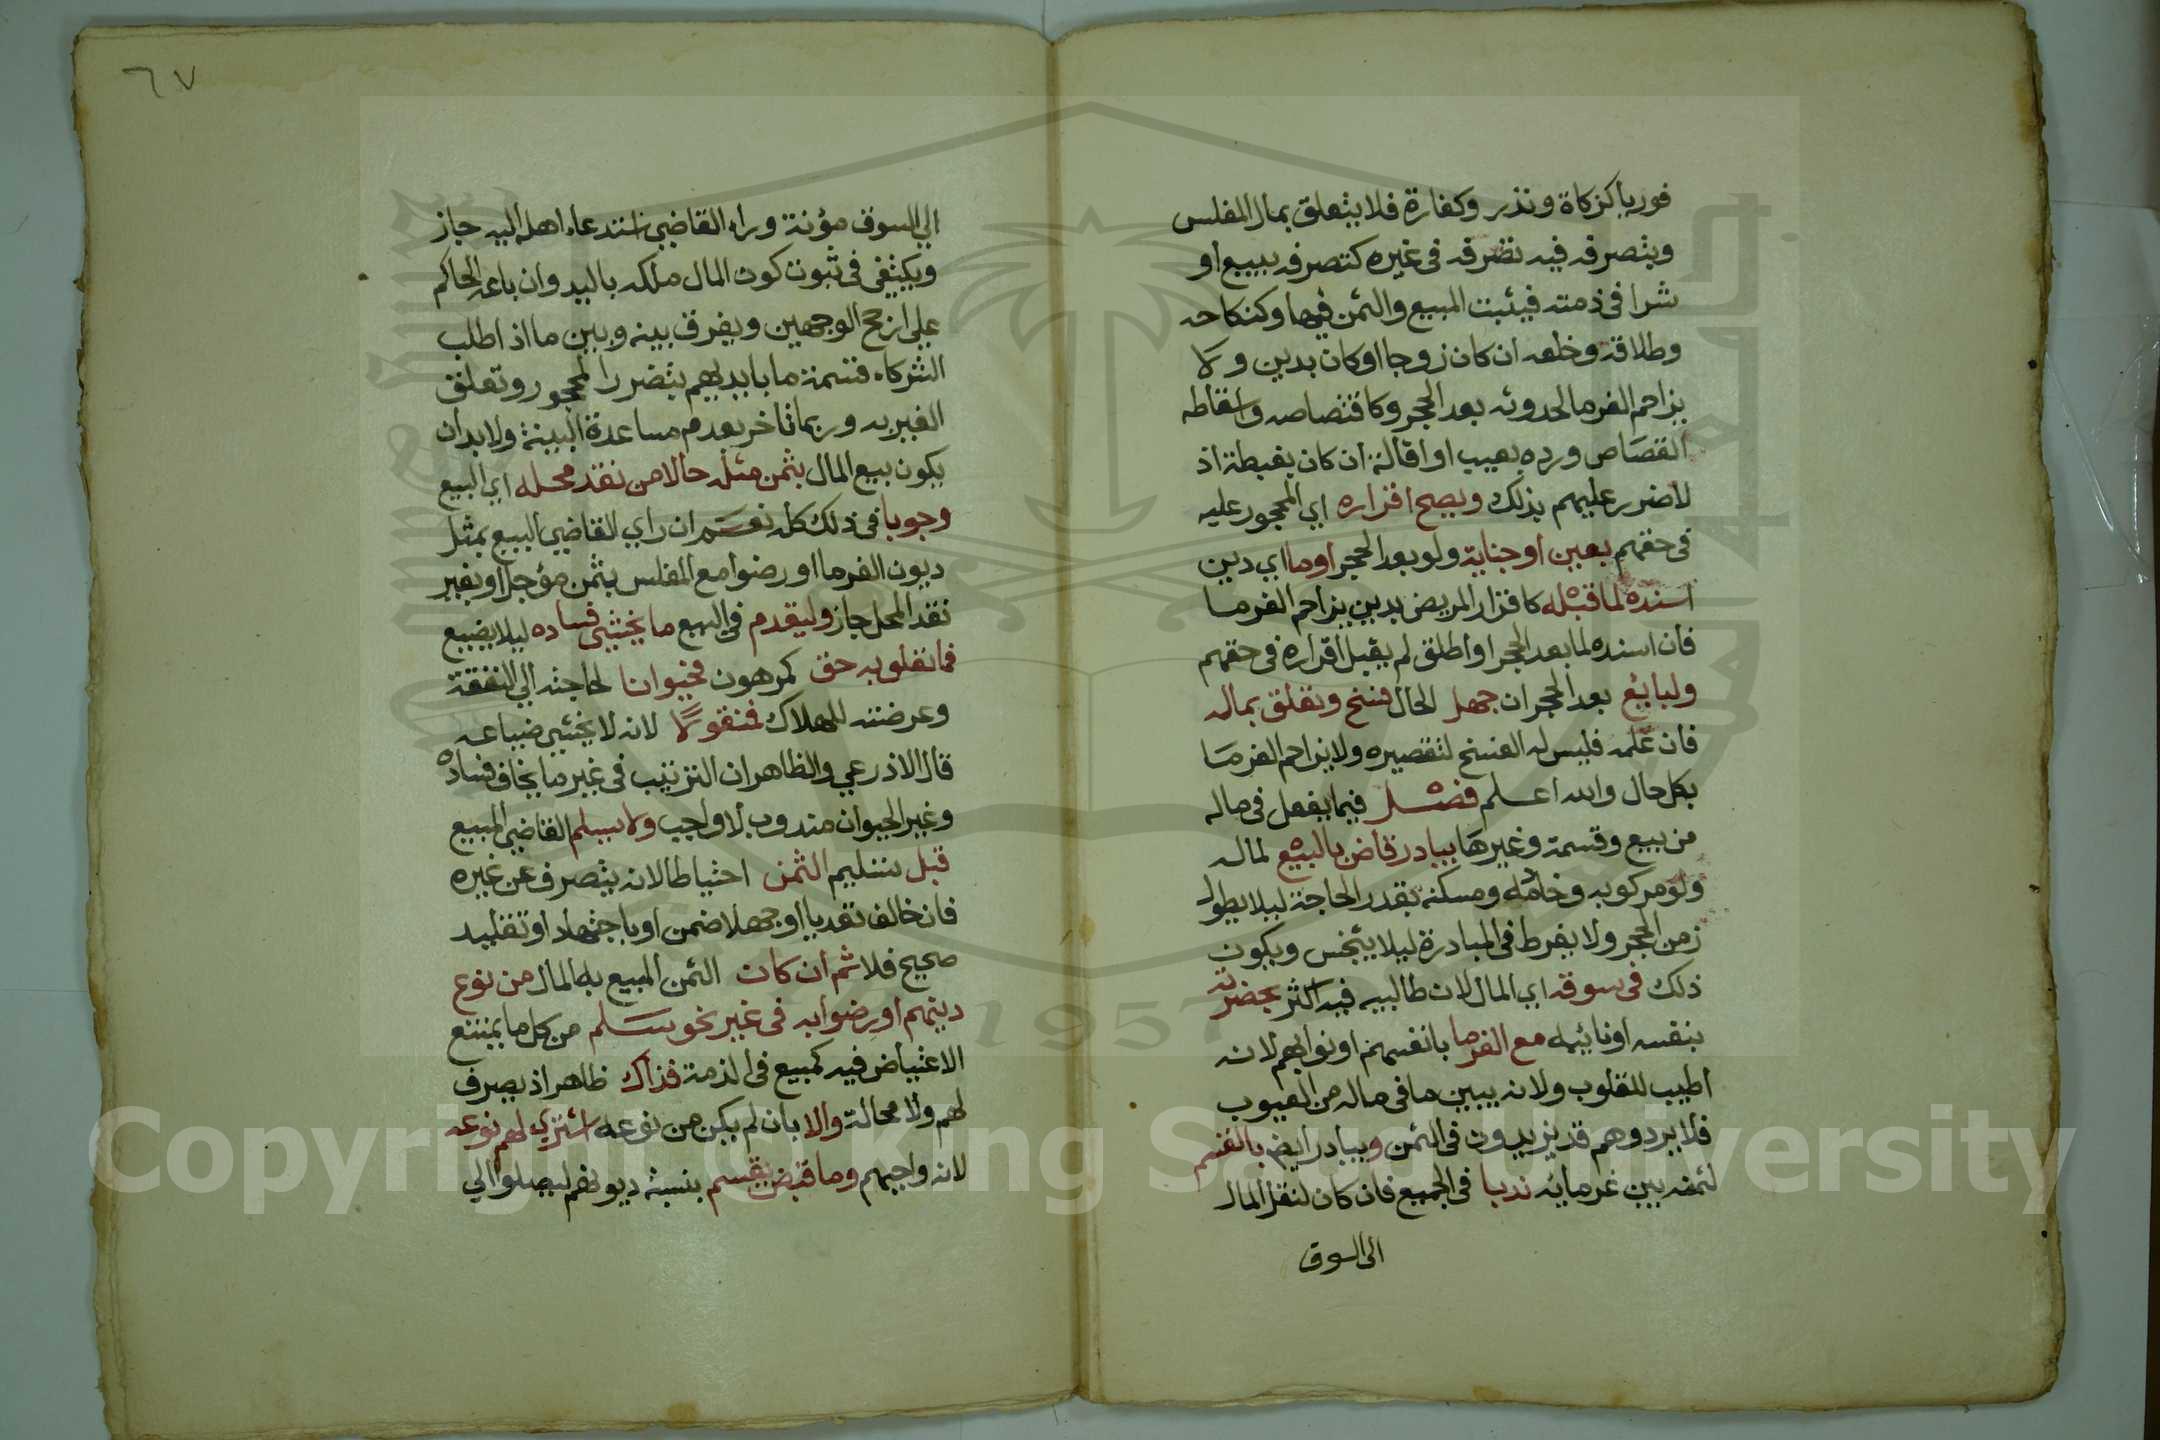 فوريا كزكاة ونذر وكفارة فلا يتعلق بمال المفلس
وبتصرفه فيه تصرفه في غيره كتصرفه ببيع او
شرا في ذمته فيثبت المبيع والثمن فيها وكنكاحه
وطلاقه وخلعه ان كان زوجا او كان بدين ولا
يزاحم الغرما لحدوثه بعد الحجر وكاقتصاصه واسقاطه
القصاص ورده بعيب او اقالة ان كان بغبطة اذ
لا ضرر عليهم بذلك ويصح اقراره اي المحجور عليه
في حقهم بعين او جناية ولو بعد الحجر او ما اي دين
اسنده لما قبله كاقرار المريض بدين يزاحم الغرما
فان اسنده لما بعد الحجر او اطلق لم يقبل اقراره في حقهم
ولبايع بعد الحجر ان جهل الحال فسخ وتعلق بماله
فان علمه فليس له الفسخ لتقصيره ولا يزاحم الغرما
بكل حال والله اعلم فصل فيما يفعل في ماله
من بيع وقسمة وغيرها يبادر قاض بالبيع لماله
ولو مركوبه وخادمه ومسكنه بقدر الحاجة ليلا يطول
زمن الحجر ولا يفرط في المبادرة ليلا يبخس ويكون
ذلك في سوقه اي المال لان طالبيه فيه اكثر بحضرته
بنفسه او نائبه مع الغرما بانفسهم او نوابهم لانه
اطيب للقلوب ولانه يبين ما في ماله من العيوب
فلا يرد وهم قد يزيدون في الثمن ويبادر ايضا بالقسم
لثمنه بين غرمائه ندبا في الجميع فان كان لنقل المال
الى السوق
٦٧
الى السوق مؤنة وراه القاضي استدعاء اهله اليه جاز
ويكتفي في ثبوت كون المال ملكه باليد وان باعه الحاكم
على ارجح الوجهين ويفرق بينه وبين ما اذ اطلب
الشركاء قسمة ما بايديهم بتضرر المحجور وتعلق
الغير به وربما تاخر بعدم مساعدة البينة ولابد ان
يكون بيع المال بثمن مثله حالا من نقد محله اي البيع
وجوبا في ذلك كله نعم ان راي القاضي البيع بمثل
ديون الغرما او رضوا مع المفلس بثمن مؤجل او بغير
نقد المحل جاز وليقدم في البيع ما يخشى فساده ليلا يضيع
فما تعلق به حق كمرهون فحيوانا لحاجته الى النفقة
وعرضته للهلاك فمنقولا لانه لا يخشى ضياعه
قال الاذرعي والظاهر ان الترتيب في غير ما يخاف فساده
وغير الحيوان مندوب لا واجب ولا يسلم القاضي المبيع
قبل تسليم الثمن احتياطا لانه يتصرف عن غيره
فان خالف تعديا او جهلا ضمن او باجتهاد او تقليد
صحيح فلا ثم ان كان الثمن المبيع به المال من نوع
دينهم او رضوا به في غير نحو سلم من كل ما يمتنع
الاعتياض فيه كمبيع في الذمة فذاك ظاهر اذ يصرف
لهم ولا محالة والا بان لم يكن من نوعه اشترى لهم نوعه
لانه واجبهم وما قبض يقسم بنسبة ديونهم ليصلوا الى
Copyright © King Saud University
1957